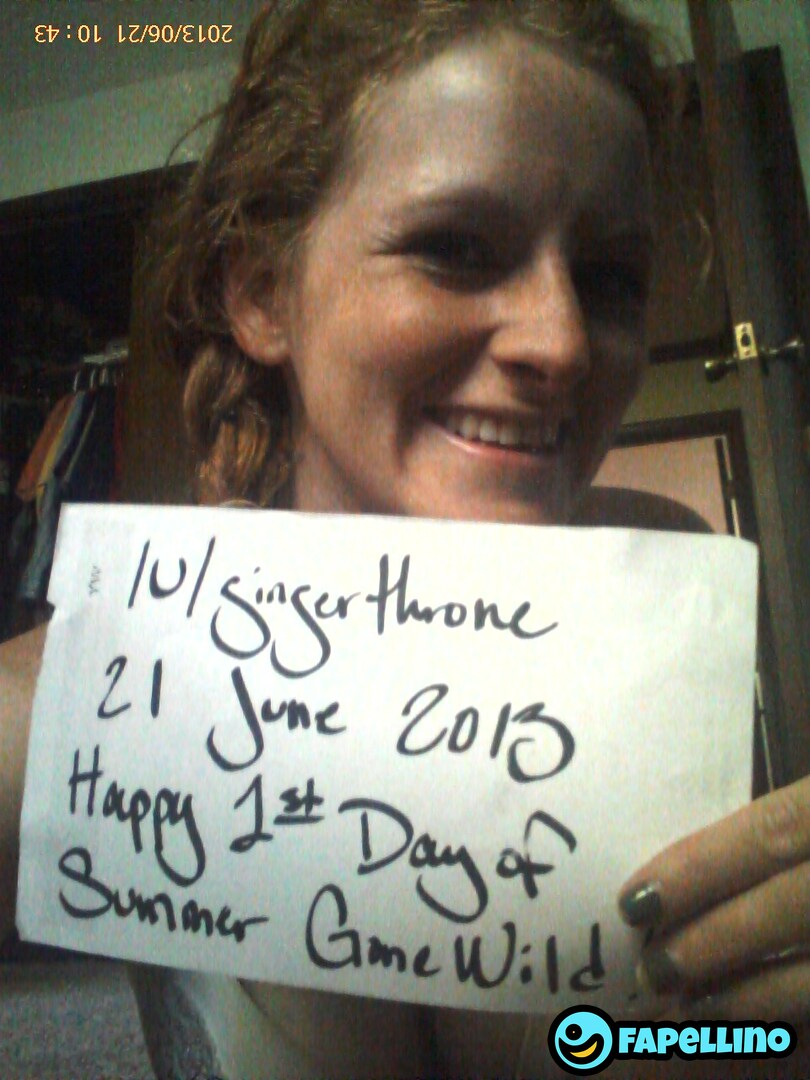 2013/06/21 10:43
/u/gingerthrone
21 June 2013
Happy 1st Day of
Summer GoneWild.
FAPELLINO